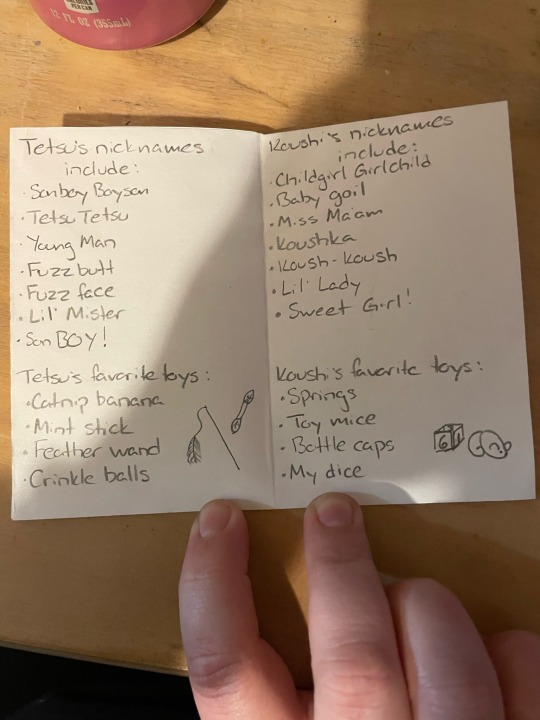 12 FL OZ (355mL)
Tetsu's nicknames
include:
· Sonboy Boyson
· Tetsu Tetsu
· Young Man
· Fuzzbutt
· Fuzz face
· Lil' Mister
· Son BOY!
Tetsu's favorite toys:
· Catnip banana
· Mint stick
· Feather wand
· Crinkle balls
Koushi's nicknames
include:
· Childgirl Girlchild
· Baby goil
· Miss Ma'am
· Koushka
· Koush-Koush
· Lil' Lady
· Sweet Girl!
Koushi's favorite toys:
· Springs
· Toy mice
· Bottle caps
· My dice
6